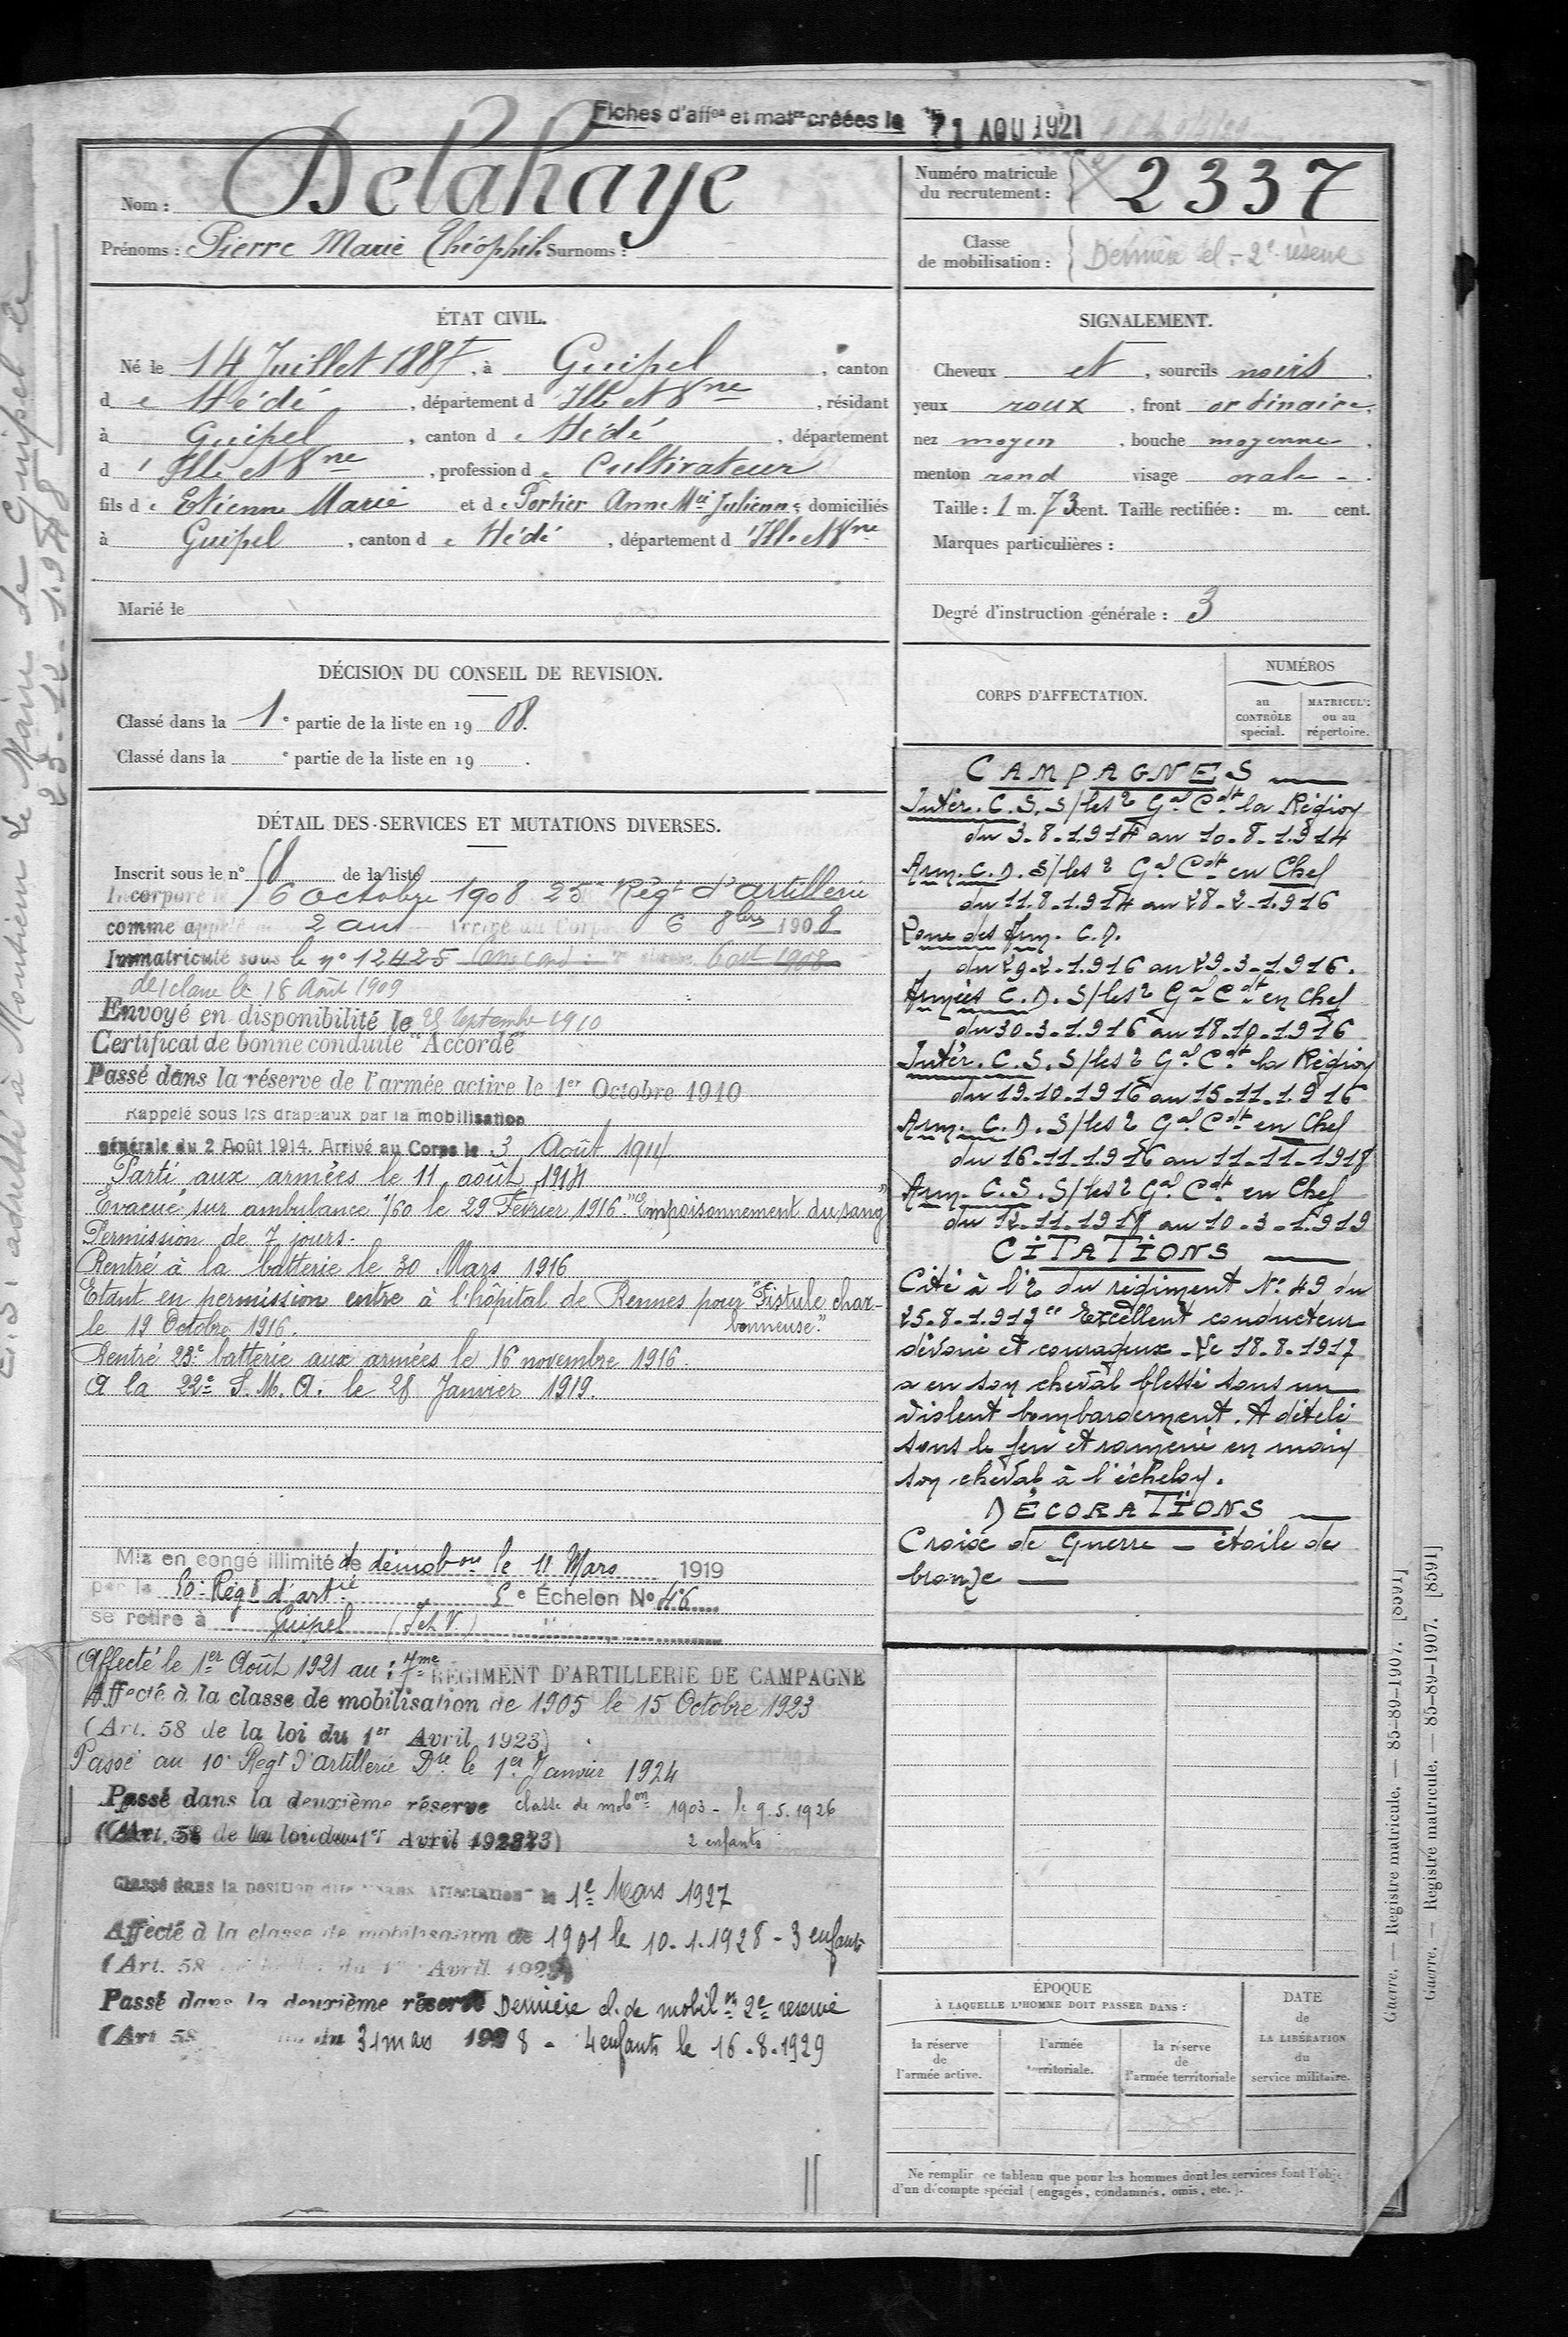 Fiches d'aff^on et mat^re créées le 1 AOU 1921
Nom : Delahaye
Prénoms : Pierre Marie Théophile Surnoms :
Numéro matricule du recrutement : 2337
Classe de mobilisation : Dernière cl. - 2e réserve
ÉTAT CIVIL.
Né le 14 Juillet 1887, à Guipel, canton
de Hédé, département d'Ille et Vne, résidant
à Guipel, canton de Hédé, département
d'Ille et Vne, profession de Cultivateur
fils de Etienne Marie et de Portier Anne Mie Julienne domiciliés
à Guipel, canton de Hédé, département d'Ille et Vne
Marié le
SIGNALEMENT.
Cheveux et, sourcils noirs,
yeux roux, front ordinaire,
nez moyen, bouche moyenne,
menton rond visage ovale.
Taille : 1 m. 73 cent. Taille rectifiée : m. cent.
Marques particulières :
Degré d'instruction générale : 3
DÉCISION DU CONSEIL DE REVISION.
Classé dans la 1e partie de la liste en 1908.
Classé dans la e partie de la liste en 19 .
DÉTAIL DES SERVICES ET MUTATIONS DIVERSES.
Inscrit sous le n° de la liste
Incorporé le 6 Octobre 1908 25e Régt d'artillerie
comme appelé 2 ans Arrivé au Corps 6 8bre 1908
Immatriculé sous le n° 12425
classe le 18 Août 1909
Envoyé en disponibilité le 25 Septembre 1910
Certificat de bonne conduite "Accordé"
Passé dans la réserve de l'armée active le 1er Octobre 1910
Rappelé sous les drapeaux par la mobilisation
générale du 2 Août 1914. Arrivé au Corps le 3 Août 1914
Parti aux armées le 11 août 1914
Evacué sur ambulance 1/60 le 29 Février 1916. "Empoisonnement du sang"
Permission de 7 jours.
Rentré à la batterie le 30 Mars 1916
Etant en permission entre à l'hôpital de Rennes pour "Fistule char-
le 19 Octobre 1916. bonneuse."
Rentré 23e batterie aux armées le 16 novembre 1916.
A la 22e S.M.A. le 28 Janvier 1919.
Mis en congé illimité de démobon le 11 Mars 1919
par le 50e Régt d'artie 5e Échelon No 46
se retire à Guipel (I et V.)
Affecté le 1er Août 1921 au : 7me RÉGIMENT D'ARTILLERIE DE CAMPAGNE
Affecté à la classe de mobilisation de 1905 le 15 Octobre 1923
(Art. 58 de la loi du 1er Avril 1923)
Passé au 10e Regt d'Artillerie Dre le 1er Janvier 1924
Passé dans la deuxième réserve classe de mobon 1903 - le 9.5.1926
(Art. 58 de la loi du 1er Avril 1923) 2 enfants
Classé dans la position dite "sans affectation" le 1e Mars 1927
Affecté à la classe de mobilisation de 1901 le 10.1.1928 - 3 enfants
(Art. 58 du 1er Avril 1923)
Passé dans la deuxième réserve Dernière cl. de mobilon 2e reserve
(Art 58 du 31 mars 1928 - 4 enfants le 16.8.1929
CORPS D'AFFECTATION.
NUMÉROS
au CONTRÔLE spécial.
MATRICULE ou au répertoire.
CAMPAGNES
Intér. C.S. S/les 2 Gal Cdt la Région
du 3.8.1914 au 10.8.1914
Arm. C.D. S/les 2 Gal Cdt en Chef
du 11.8.1914 au 28.2.1916
Zone des Arm. C.D.
du 29.2.1916 au 29.3.1916.
Armées C.D. S/les 2 Gal Cdt en Chef
du 30.3.1916 au 18.10.1916
Intér. C.S. S/les 2 Gal Cdt la Région
du 19.10.1916 au 15.11.1916
Arm. C.D. S/les 2 Gal Cdt en Chef
du 16.11.1916 au 11.11.1918
Arm. C.S. S/les 2 Gal Cdt en Chef
du 12.11.1918 au 10.3.1919
CITATIONS
Cité à l'2 du régiment No 49 du
25.8.1917 "Excellent conducteur
dévoué et courageux. Le 18.8.1917
a eu son cheval blessé sous un
violent bombardement. A dételé
sous le feu et ramené en main
son cheval à l'échelon.
DÉCORATIONS
Croix de Guerre — étoile de
bronze
ÉPOQUE À LAQUELLE L'HOMME DOIT PASSER DANS :
la réserve de l'armée active.
l'armée territoriale.
la réserve de l'armée territoriale
DATE de LA LIBÉRATION du service militaire.
Ne remplir ce tableau que pour les hommes dont les services font l'objet
d'un décompte spécial (engagés, condamnés, omis, etc.).
Guerre. — Registre matricule. — 85-89-1907. [8591]
Guerre. — Registre matricule. — 85-89-1907. [8591]
adressé à Monsieur le Maire de Guipel le